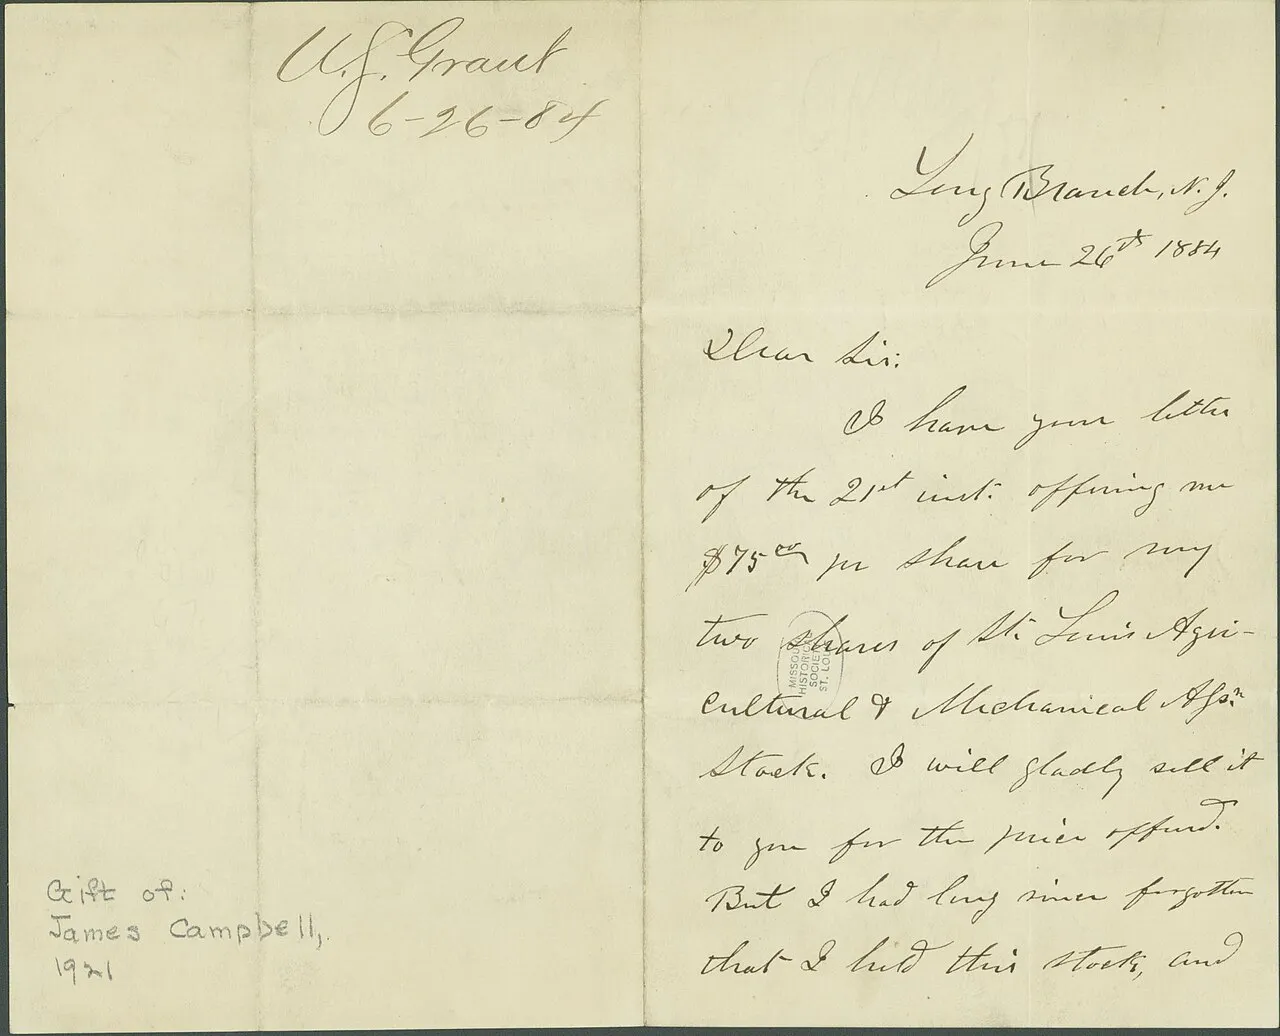 U.S. Grant
6-26-84
Gift of:
James Campbell,
1921
Long Branch, N.J.
June 26th 1884
Dear Sir:
I have your letter
of the 21st inst. offering me
$75.00 pr share for my
two shares of St. Louis Agri-
cultural & Mechanical Assn
Stock. I will gladly sell it
to you for the price offered.
But I had long since forgotten
that I held this stock, and
MISSOURI
HISTORICAL
SOCIETY
ST. LOUIS